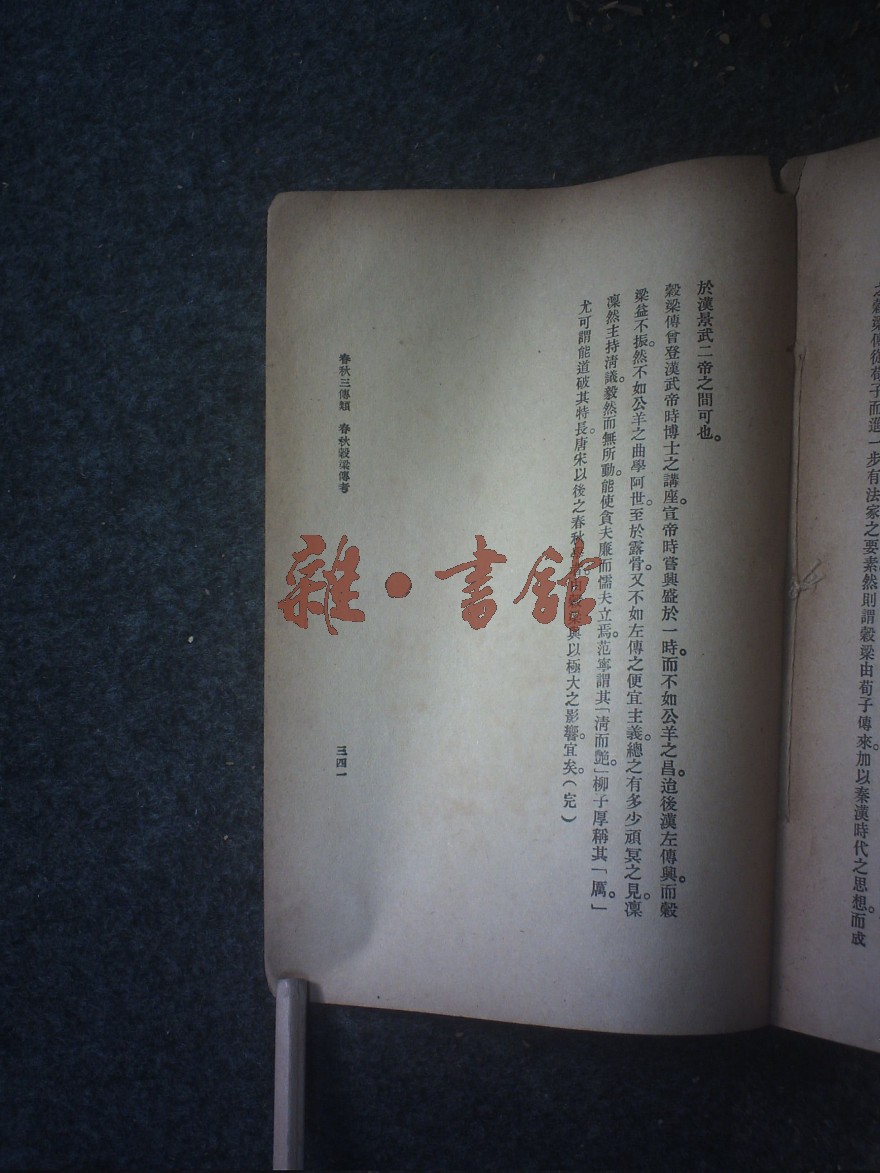 之穀梁傳從荀子而進一步有法家之要素然則謂穀梁由荀子傳來。加以秦漢時代之思想而成
於漢景武二帝之間可也。
穀梁傳曾登漢武帝時博士之講座。宣帝時嘗興盛於一時。而不如公羊之昌。迨後漢左傳興。而穀
梁益不振。然不如公羊之曲學阿世。至於露骨。又不如左傳之便宜主義。總之有多少頑冥之見。凜
凜然主持清議。毅然而無所動。能使貪夫廉而懦夫立焉。范寧謂其「清而艷。」柳子厚稱其「厲。」
尤可謂能道破其特長。唐宋以後之春秋由穀梁與以極大之影響。宜矣。(完)
春秋三傳類 春秋穀梁傳考
三四一
雜·書館